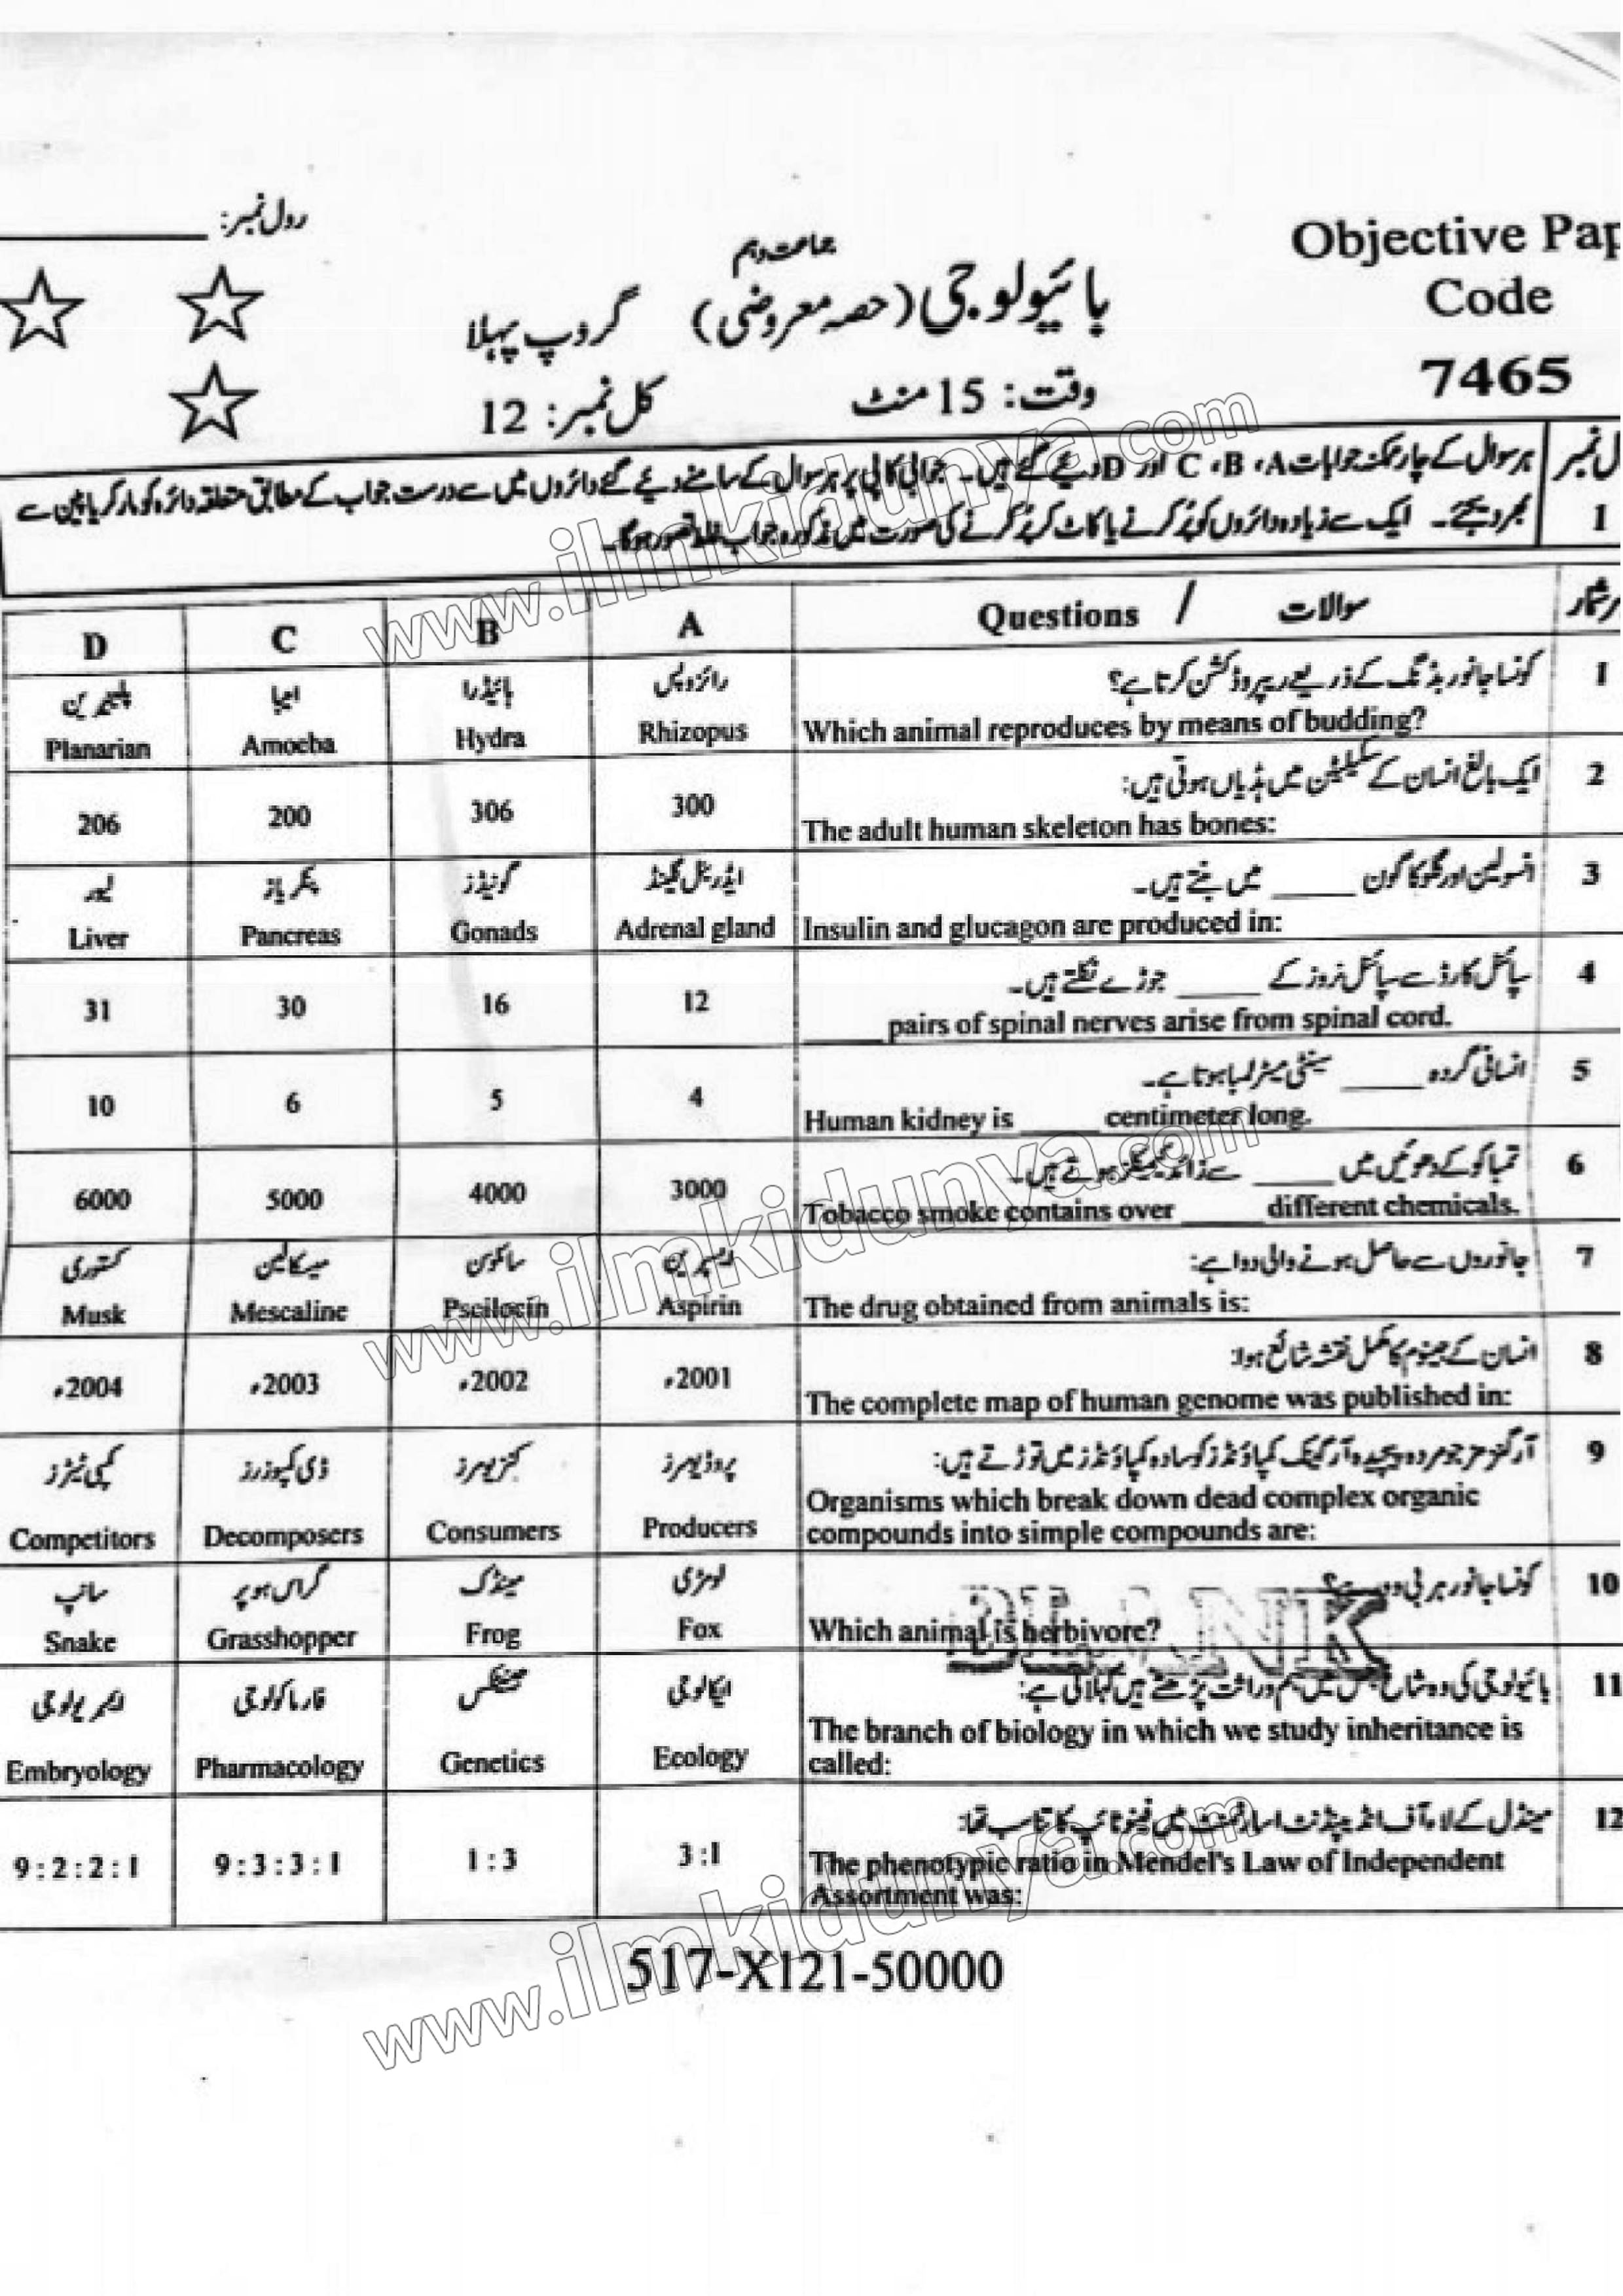 رول نمبر:
Objective Pap
Code
7465
جماعت دہم
بائیولوجی (حصہ معروضی) گروپ پہلا
وقت: 15 منٹ کل نمبر: 12
ل نمبر
1
ہر سوال کے چار ممکنہ جوابات A، B، C اور D دیئے گئے ہیں۔ جوابی کاپی پر ہر سوال کے سامنے دیئے گئے دائروں میں سے درست جواب کے مطابق متعلقہ دائرہ کو مارکر یا پین سے
بھر دیجئے۔ ایک سے زیادہ دائروں کو پُر کرنے یا کاٹ کر پُر کرنے کی صورت میں مذکورہ جواب غلط تصور ہوگا۔
رشمار سوالات / Questions A B C D
1 کونسا جانور بڈنگ کے ذریعے ریپروڈکشن کرتا ہے؟
رائزوپس ہائیڈرا امیبا پلینیرین
Which animal reproduces by means of budding? Rhizopus Hydra Amoeba Planarian
2 ایک بالغ انسان کے سکیلیٹن میں ہڈیاں ہوتی ہیں:
The adult human skeleton has bones: 300 306 200 206
3 انسولین اور گلوکاگون _____ میں بنتے ہیں۔
ایڈرینل گلینڈ گونیڈز پنکریاز لیور
Insulin and glucagon are produced in: Adrenal gland Gonads Pancreas Liver
4 سپائنل کارڈ سے سپائنل نروز کے _____ جوڑے نکلتے ہیں۔
_____ pairs of spinal nerves arise from spinal cord. 12 16 30 31
5 انسانی گردہ _____ سینٹی میٹر لمبا ہوتا ہے۔
Human kidney is _____ centimeter long. 4 5 6 10
6 تمباکو کے دھوئیں میں _____ سے زائد کیمیکلز ہوتے ہیں۔
Tobacco smoke contains over _____ different chemicals. 3000 4000 5000 6000
7 جانوروں سے حاصل ہونے والی دوا ہے:
اسپرین سائلوسن میسکالین کستوری
The drug obtained from animals is: Aspirin Pscilocin Mescaline Musk
8 انسان کے جینوم کا مکمل نقشہ شائع ہوا:
The complete map of human genome was published in: 2001ء 2002ء 2003ء 2004ء
9 آرگنزمز جو مردہ پیچیدہ آرگینک کمپاؤنڈز کو سادہ کمپاؤنڈز میں توڑتے ہیں:
پروڈیوسرز کنزیومرز ڈی کمپوزرز کمپی ٹیٹرز
Organisms which break down dead complex organic
compounds into simple compounds are: Producers Consumers Decomposers Competitors
10 کونسا جانور ہربی وور ہے؟
لومڑی مینڈک گراس ہوپر سانپ
Which animal is herbivore? Fox Frog Grasshopper Snake
BLANK
11 بائیولوجی کی وہ شاخ جس میں ہم وراثت پڑھتے ہیں کہلاتی ہے:
ایکالوجی جینیٹکس فارماکولوجی ایمبریولوجی
The branch of biology in which we study inheritance is
called: Ecology Genetics Pharmacology Embryology
12 مینڈل کے لاء آف انڈیپنڈنٹ اسارٹمنٹ میں فینوٹائپ کا تناسب تھا:
The phenotypic ratio in Mendel's Law of Independent
Assortment was: 3:1 1:3 9:3:3:1 9:2:2:1
517-X121-50000
www.ilmkidunya.com
www.ilmkidunya.com
www.ilmkidunya.com